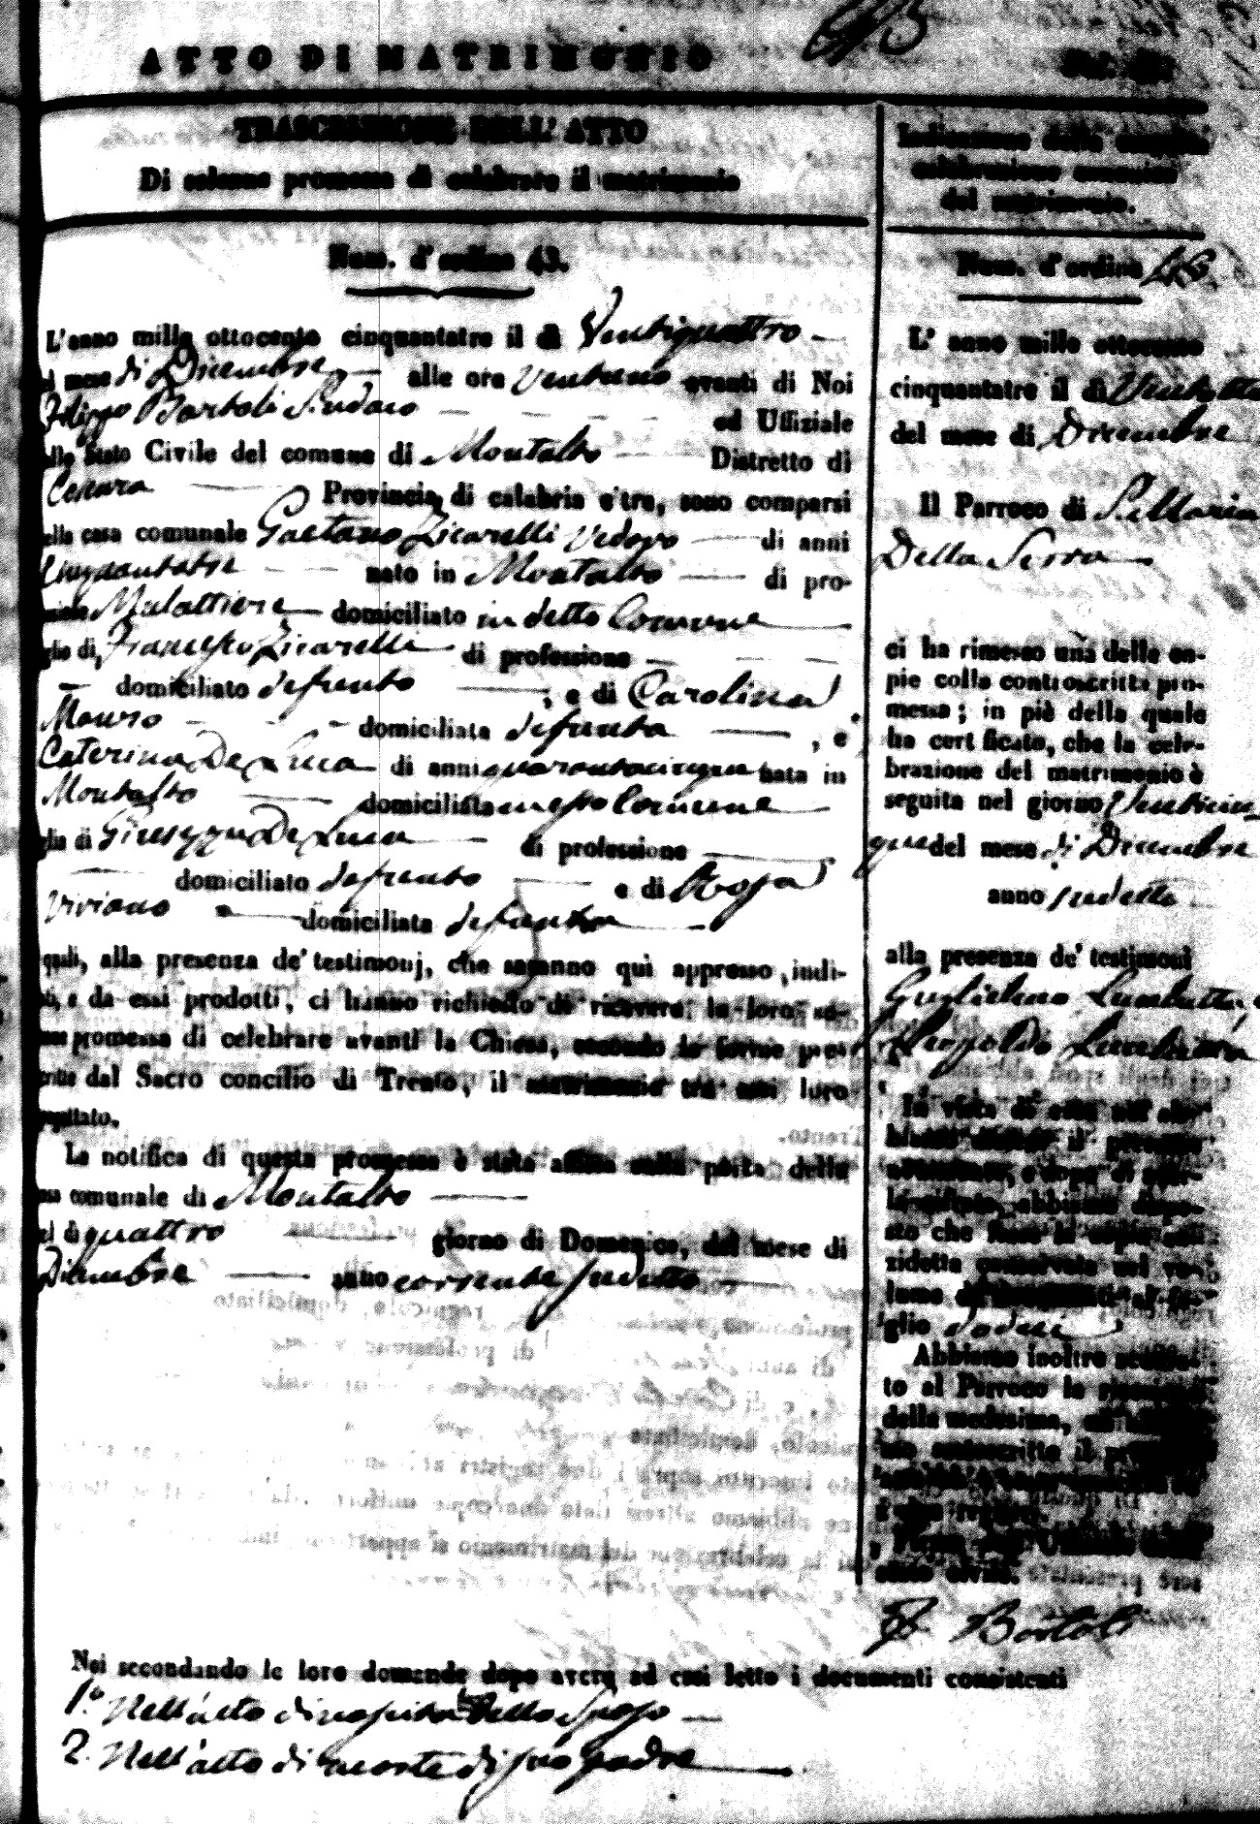 ATTO DI MATRIMONIO
TRASCRIZIONE DELL' ATTO
Di solenne promessa di celebrare il matrimonio
Num. d' ordine 43.
L'anno mille ottocento cinquantatre il dì Ventiquattro
el mese di Dicembre alle ore Ventuno avanti di Noi
Filippo Bartoli Sindaco
ed Uffiziale
ello Stato Civile del comune di Montalto Distretto di
Cosenza Provincia di calabria citra, sono comparsi
ella casa comunale Gaetano Zicarelli Vedovo di anni
Cinquantatre nato in Montalto di pro-
Mulattiere domiciliato in detto Comune
glio di Francesco Zicarelli di professione
domiciliato defunto , e di Carolina
Mauro domiciliata defunta , e
Caterina De Luca di anni quarantacinque nata in
Montalto domiciliata in esso Comune
glia di Giuseppe De Luca di professione
domiciliato defunto e di Rosa
Viviano domiciliata defunta
quali, alla presenza de' testimonj, che saranno quì appresso, indi-
ti, e da essi prodotti, ci hanno richiesto di ricevere la loro so-
nne promessa di celebrare avanti la Chiesa, secondo le forme pres-
critte dal Sacro concilio di Trento, il matrimonio tra essi loro
gettato.
La notifica di questa promessa è stata affissa sulla porta della
asa comunale di Montalto
el dì quattro giorno di Domenica, del mese di
Dicembre anno corrente sudetto
Noi secondando le loro domande dopo avere ad essi letto i documenti consistenti
1.° Nell'atto di nascita dello Sposo
2. Nell'atto di morte di suo padre
Indicazione della seguita
celebrazione canonica
del matrimonio.
Num. d'ordine 43
L' anno mille ottocento
cinquantatre il dì
del mese di Dicembre
Il Parroco di S. Maria
Della Serra
ci ha rimesso una delle co-
pie colla controscritta pro-
messa; in piè della quale
ha certificato, che la cele-
brazione del matrimonio è
seguita nel giorno Venticin
que del mese di Dicembre
anno sudetto
alla presenza de' testimoni
Guglielmo
Leopoldo
In vista di essa noi ab-
biamo disteso il presente
abbiamo dispo-
sto che fosse la copia an-
zidetta conservata nel vo-
lume
glio dodeci
Abbiamo inoltre accusa-
to al Parroco la ricezione
della medesima, ed
sottoscritto il presente
stato civile.
F. Bartoli